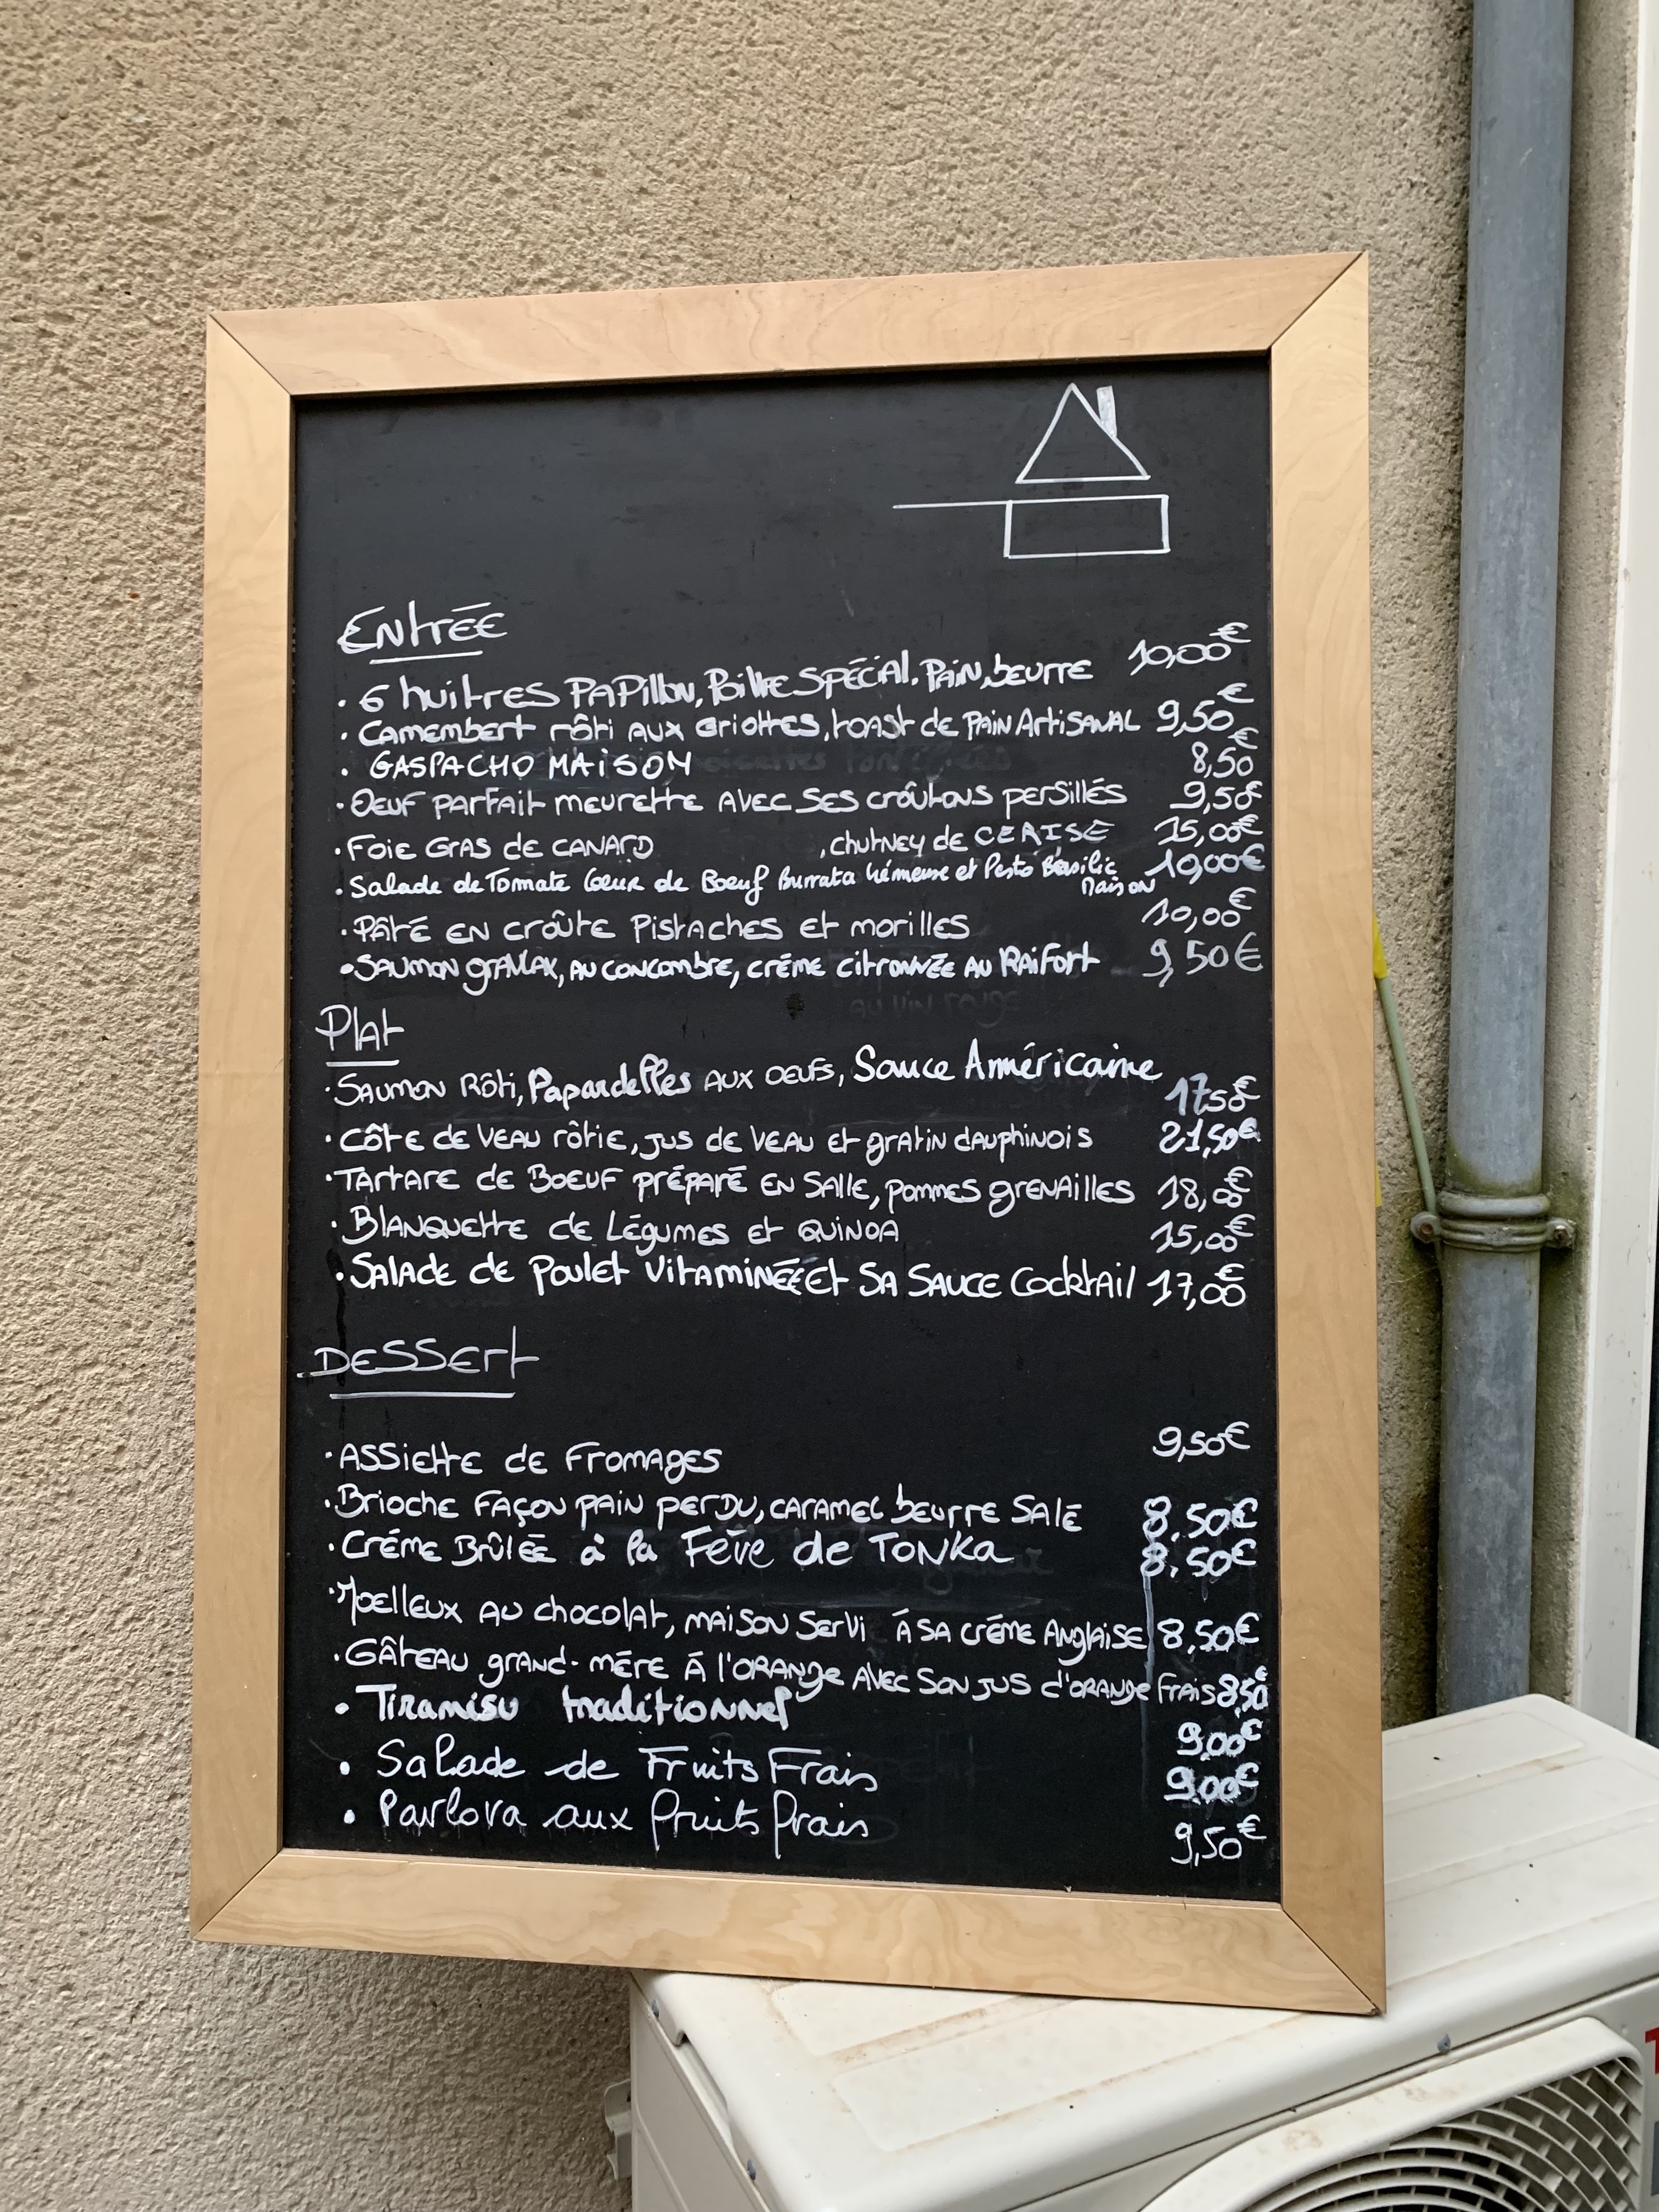 Entrée
. 6 huitres Papillon, Poivre Spécial, Pain, beurre 10,00€
. Camembert rôti aux griottes, toast de Pain Artisanal 9,50€
. GASPACHO MAISON 8,50€
. Oeuf parfait meurette avec ses croûtons persillés 9,50€
. Foie Gras de CANARD , chutney de CERISE 15,00€
. Salade de Tomate Coeur de Boeuf Burrata Crémeuse et Pesto Basilic 10,00€
Maison
. Pâté en croûte Pistaches et morilles 10,00€
. Saumon gravlax, au concombre, créme citronnée au Raifort 9,50€
Plat
. Saumon Rôti, Papardelles aux oeufs, Sauce Américaine
17,50€
. Côte de veau rôtie, jus de veau et gratin dauphinois 21,50€
. Tartare de Boeuf préparé en salle, pommes grenailles 18,00€
. Blanquette de Légumes et quinoa 15,00€
. Salade de Poulet Vitaminée et sa sauce Cocktail 17,00€
Dessert
. Assiette de Fromages 9,50€
. Brioche Façon pain perdu, caramel beurre Salé 8,50€
. Créme Brûlée à la Fève de Tonka 8,50€
. Moelleux au chocolat, maison Servi á sa créme Anglaise 8,50€
. Gâteau grand-mére á l'orange avec son jus d'orange frais 8,50€
. Tiramisu traditionnel 9,00€
. Salade de Fruits Frais 9,00€
. Pavlova aux fruits frais 9,50€